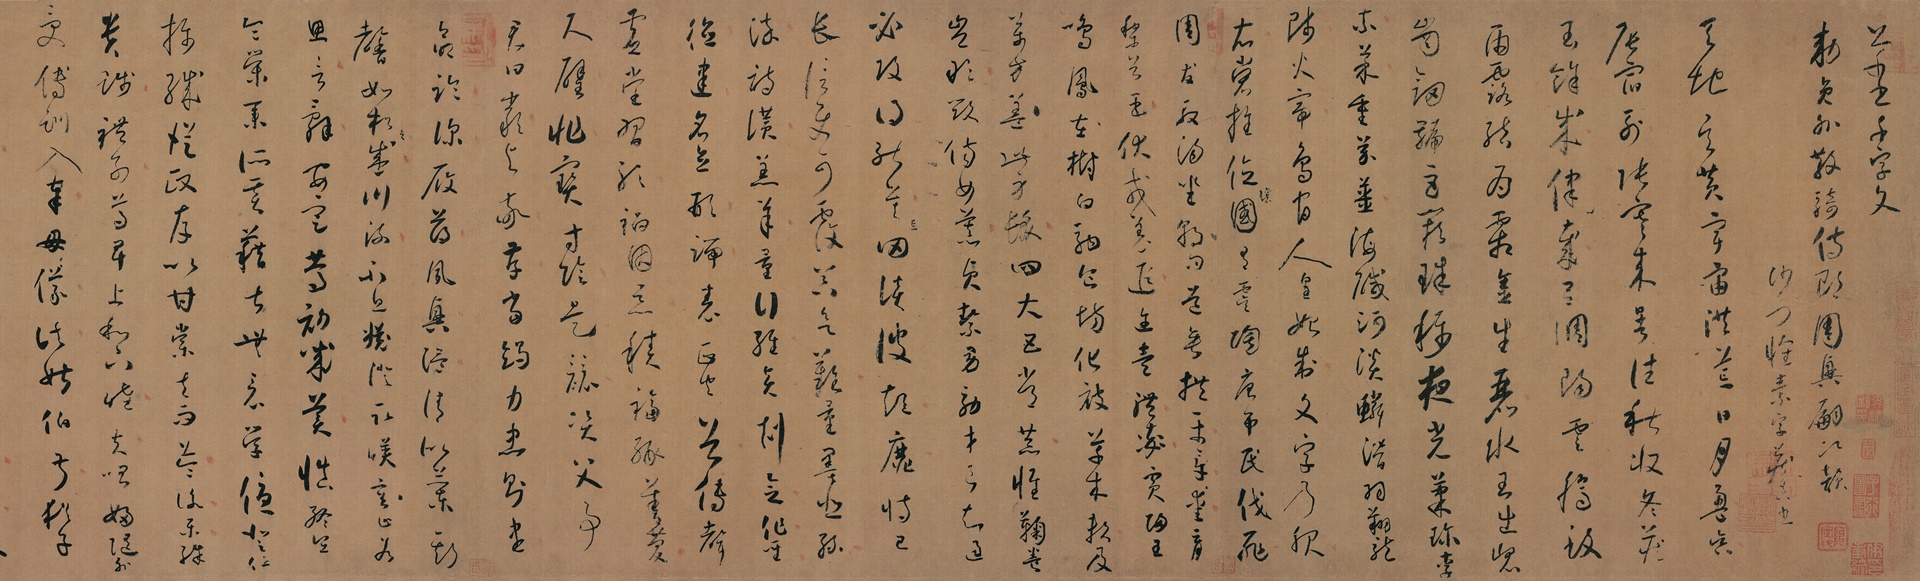 書千字文
敕員外散騎侍郎周興嗣次韻
沙門懷素字藏真也
天地玄黃宇宙洪荒日月盈昃
辰宿列張寒來暑往秋收冬藏
閏餘成律歲呂調陽雲騰致
雨露結為霜金生麗水玉出崑
崗劍號巨闕珠稱夜光菓珍李
柰菜重芥薑海鹹河淡鱗潛羽翔龍
師火帝鳥官人皇始制文字乃服
衣裳推位讓國有虞陶唐弔民伐罪
周發殷湯坐朝問道垂拱平章愛育
黎首臣伏戎羌遐邇壹體率賓歸王
鳴鳳在樹白駒食場化被草木賴及
萬方蓋此身髮四大五常恭惟鞠養
豈敢毀傷女慕貞潔男效才良知過
必改得能莫忘罔談彼短靡恃己
長信使可覆器欲難量墨悲絲
染詩讚羔羊景行維賢剋念作聖
德建名立形端表正空谷傳聲
虛堂習聽禍因惡積福緣善慶
尺璧非寶寸陰是競資父事
君曰嚴與敬孝當竭力忠則盡
命臨深履薄夙興溫凊似蘭斯
馨如松之盛川流不息淵澄取映容止若
思言辭安定篤初誠美慎終宜
令榮業所基藉甚無竟學優登仕
攝職從政存以甘棠去而益詠樂殊
貴賤禮別尊卑上和下睦夫唱婦隨外
受傅訓入奉母儀諸姑伯叔猶子